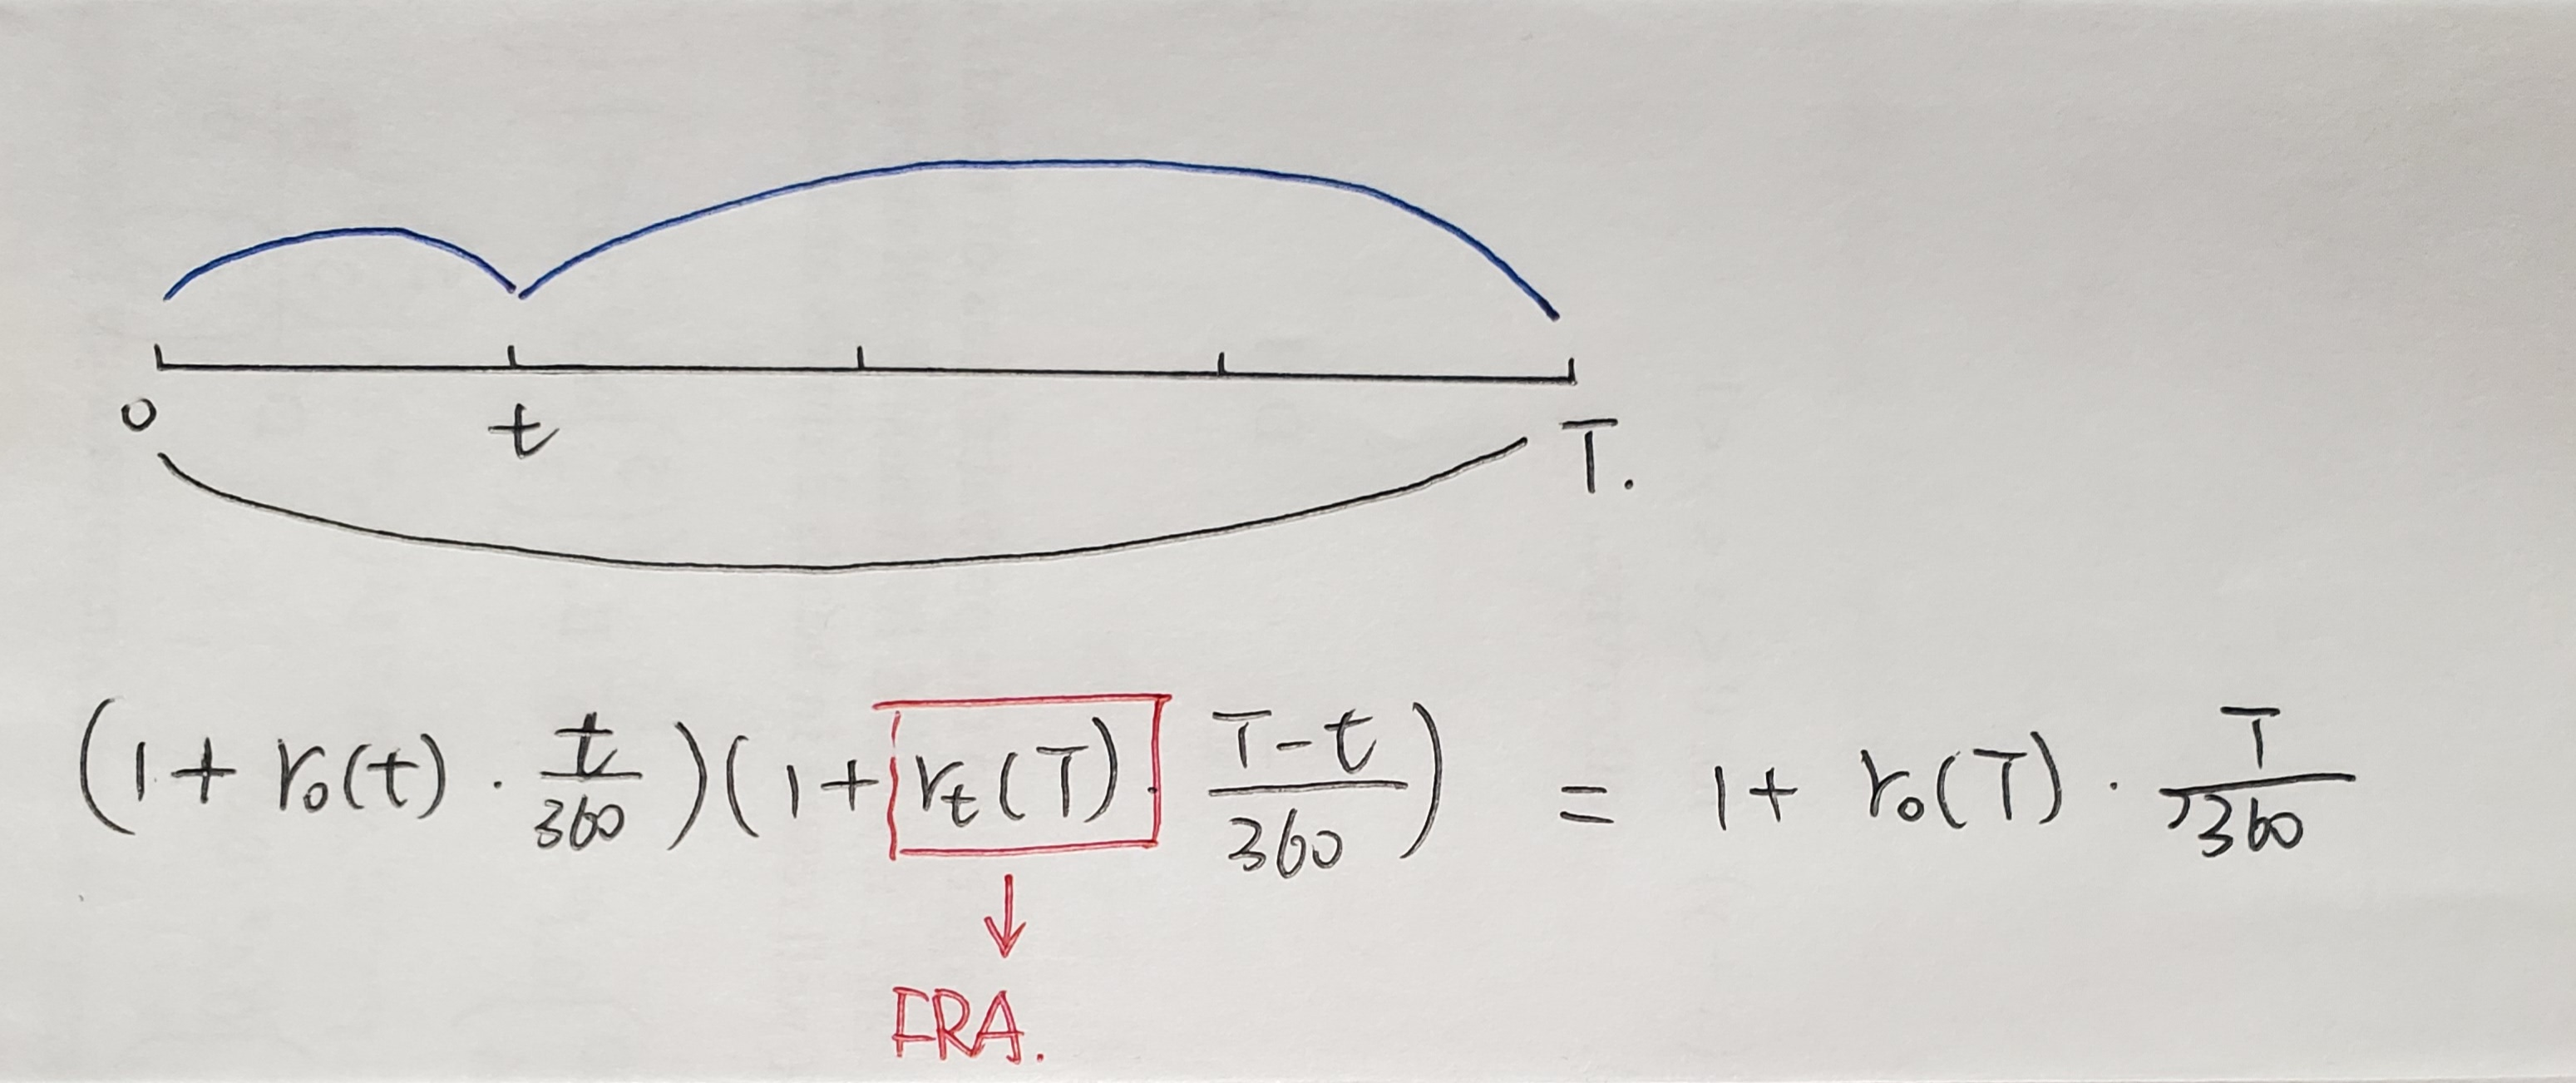 0 t T.
(1 + r₀(t) · t/360)(1 + rₜ(T) · T-t/360) = 1 + r₀(T) · T/360
FRA.